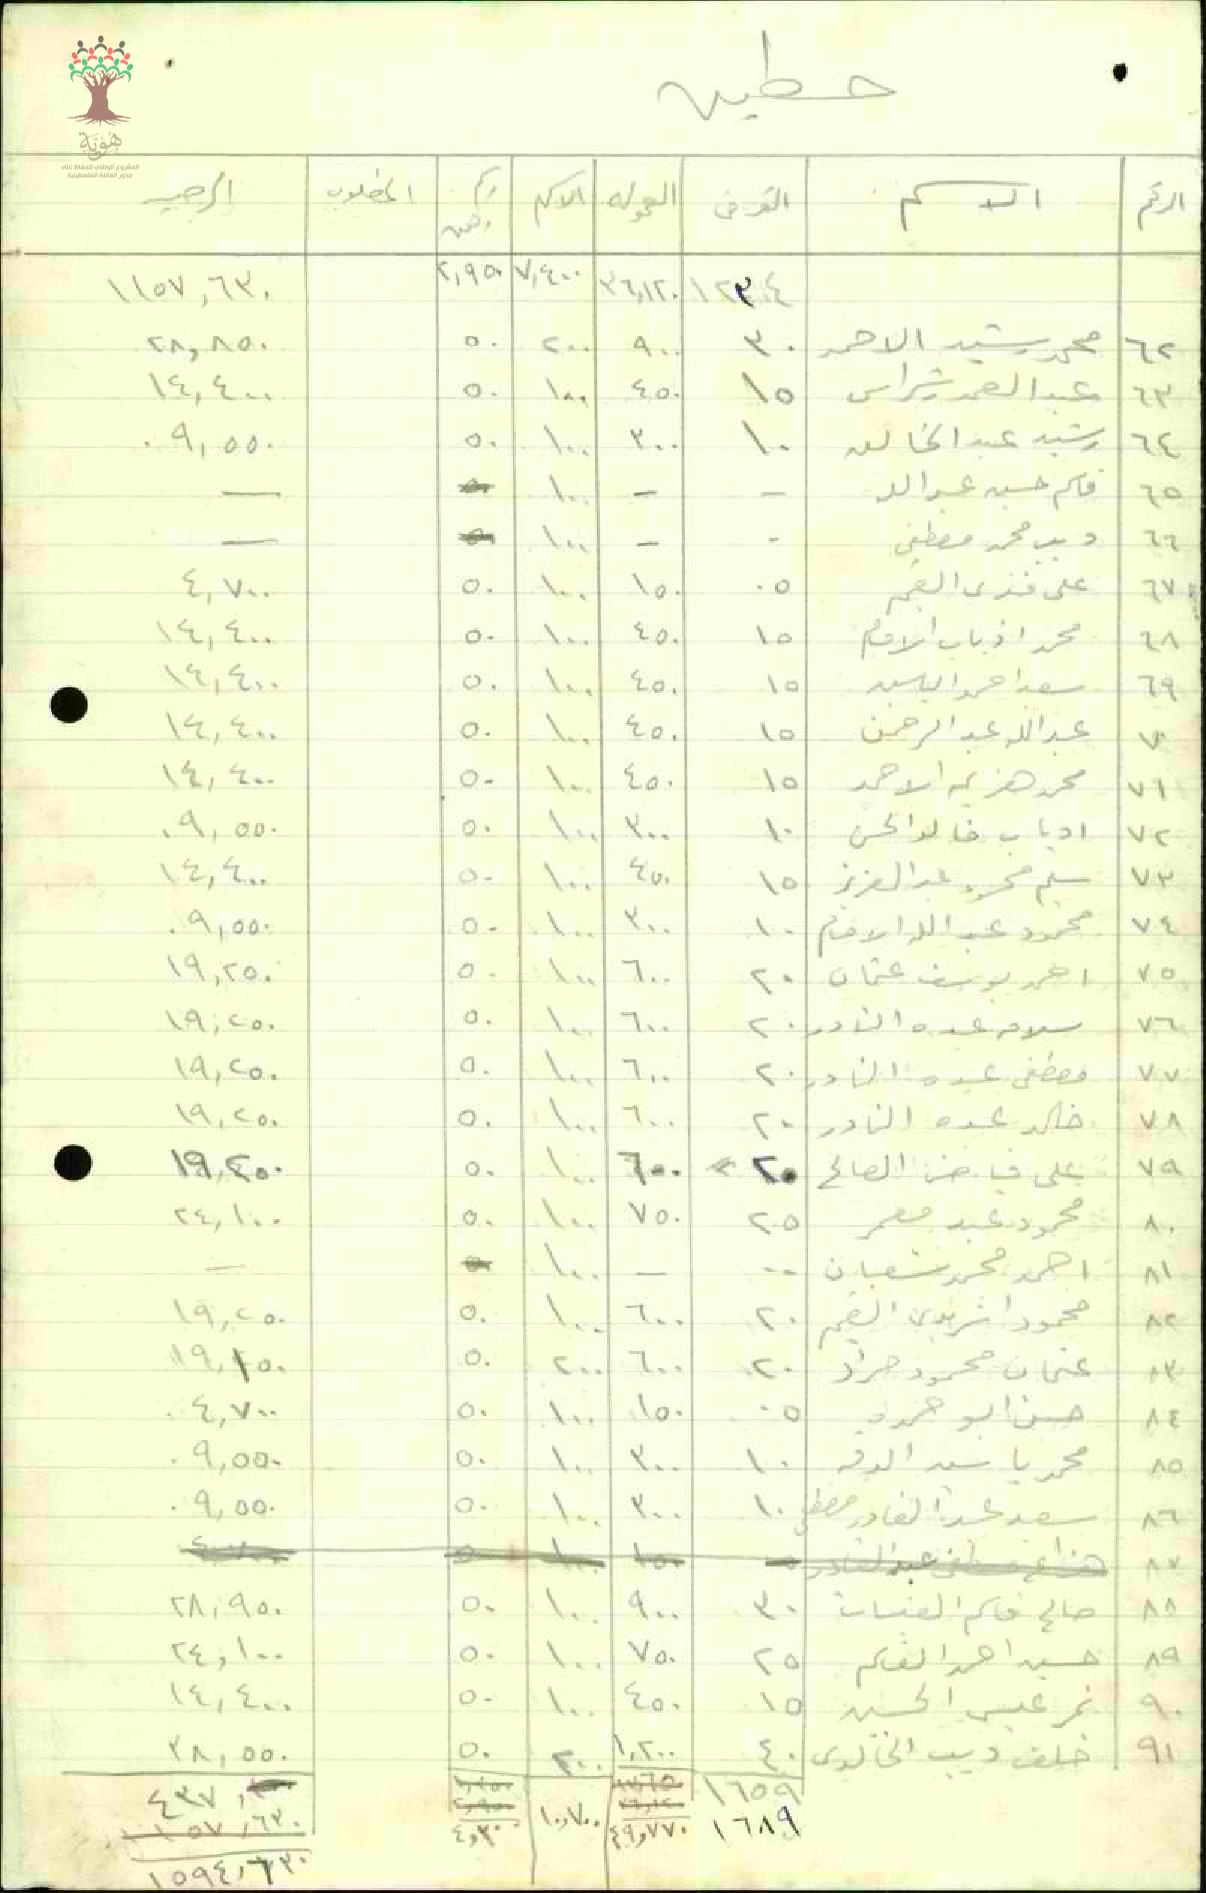 هُويَّة
المشروع الوطني للحفاظ على
جذور العائلة الفلسطينية
حطين
الرقم الاسم القرض العموله الاكم رسم رهن المطلوب الرصيد
١٢٣٤ ٣٦,١٢٠ ٧,٤٠٠ ٢,٩٥٠ ١١٥٧,٦٣٠
٦٢ محمد رشيد الاحمد ٣٠ ٩٠٠ ٢٠٠ ٥٠ ٢٨,٨٥٠
٦٣ عبد الصمد ١٥ ٤٥٠ ١٠٠ ٥٠ ١٤,٤٠٠
٦٤ رشيد عبد الخالق ١٠ ٣٠٠ ١٠٠ ٥٠ ٩,٥٥٠
٦٥ قاسم حسين عبد الله - - ١٠٠ ٥٠ —
٦٦ ديب محمد مصطفى - - ١٠٠ ٥٠ —
٦٧ على ٠٥ ١٥٠ ١٠٠ ٥٠ ٤,٧٠٠
٦٨ محمد اذياب ١٥ ٤٥٠ ١٠٠ ٥٠ ١٤,٤٠٠
٦٩ سعد احمد الياسين ١٥ ٤٥٠ ١٠٠ ٥٠ ١٤,٤٠٠
٧٠ عبد الله عبد الرحمن ١٥ ٤٥٠ ١٠٠ ٥٠ ١٤,٤٠٠
٧١ محمد هزيمه الاحمد ١٥ ٤٥٠ ١٠٠ ٥٠ ١٤,٤٠٠
٧٢ ادياب خالد الحسن ١٠ ٣٠٠ ١٠٠ ٥٠ ٩,٥٥٠
٧٣ سليم محمود عبد العزيز ١٥ ٤٥٠ ١٠٠ ٥٠ ١٤,٤٠٠
٧٤ محمود عبد الله ١٠ ٣٠٠ ١٠٠ ٥٠ ٩,٥٥٠
٧٥ احمد يوسف عثمان ٢٠ ٦٠٠ ١٠٠ ٥٠ ١٩,٢٥٠
٧٦ سلامه عبده النادر ٢٠ ٦٠٠ ١٠٠ ٥٠ ١٩,٢٥٠
٧٧ مصطفى عبده النادر ٢٠ ٦٠٠ ١٠٠ ٥٠ ١٩,٢٥٠
٧٨ خالد عبده النادر ٢٠ ٦٠٠ ١٠٠ ٥٠ ١٩,٢٥٠
٧٩ على الصالح ٢٠ ٦٠٠ ١٠٠ ٥٠ ١٩,٢٥٠
٨٠ محمود عبد معمر ٢٥ ٧٥٠ ١٠٠ ٥٠ ٢٤,١٠٠
٨١ احمد محمد شعبان -- — ١٠٠ ٥٠ —
٨٢ محمود ٢٠ ٦٠٠ ١٠٠ ٥٠ ١٩,٢٥٠
٨٣ عثمان محمود جراد ٢٠ ٦٠٠ ٢٠٠ ٥٠ ١٩,١٥٠
٨٤ حسن ابو حمده ٠٥ ١٥٠ ١٠٠ ٥٠ ٤,٧٠٠
٨٥ محمد ياسين ١٠ ٣٠٠ ١٠٠ ٥٠ ٩,٥٥٠
٨٦ سعيد عبد القادر مصطفى ١٠ ٣٠٠ ١٠٠ ٥٠ ٩,٥٥٠
٨٧ هزاع مصطفى عبد القادر ١٥٠ ١٠٠ ٥٠ ٤,٧٠٠
٨٨ صالح قاسم ٣٠ ٩٠٠ ١٠٠ ٥٠ ٢٨,٩٥٠
٨٩ حسين احمد القاسم ٢٥ ٧٥٠ ١٠٠ ٥٠ ٢٤,١٠٠
٩٠ نمر عيسى الحسين ١٥ ٤٥٠ ١٠٠ ٥٠ ١٤,٤٠٠
٩١ خلف ديب الخالدى ٤٠ ١,٢٠٠ ٢٠٠ ٥٠ ٣٨,٥٥٠
١٦٥٩ ٤٣٧
١٦٨٩ ٤٩,٧٧٠ ١٠,٧٠٠ ٤,٣٠٠ ١١٥٧,٦٣٠
١٥٩٤,٦٣٠